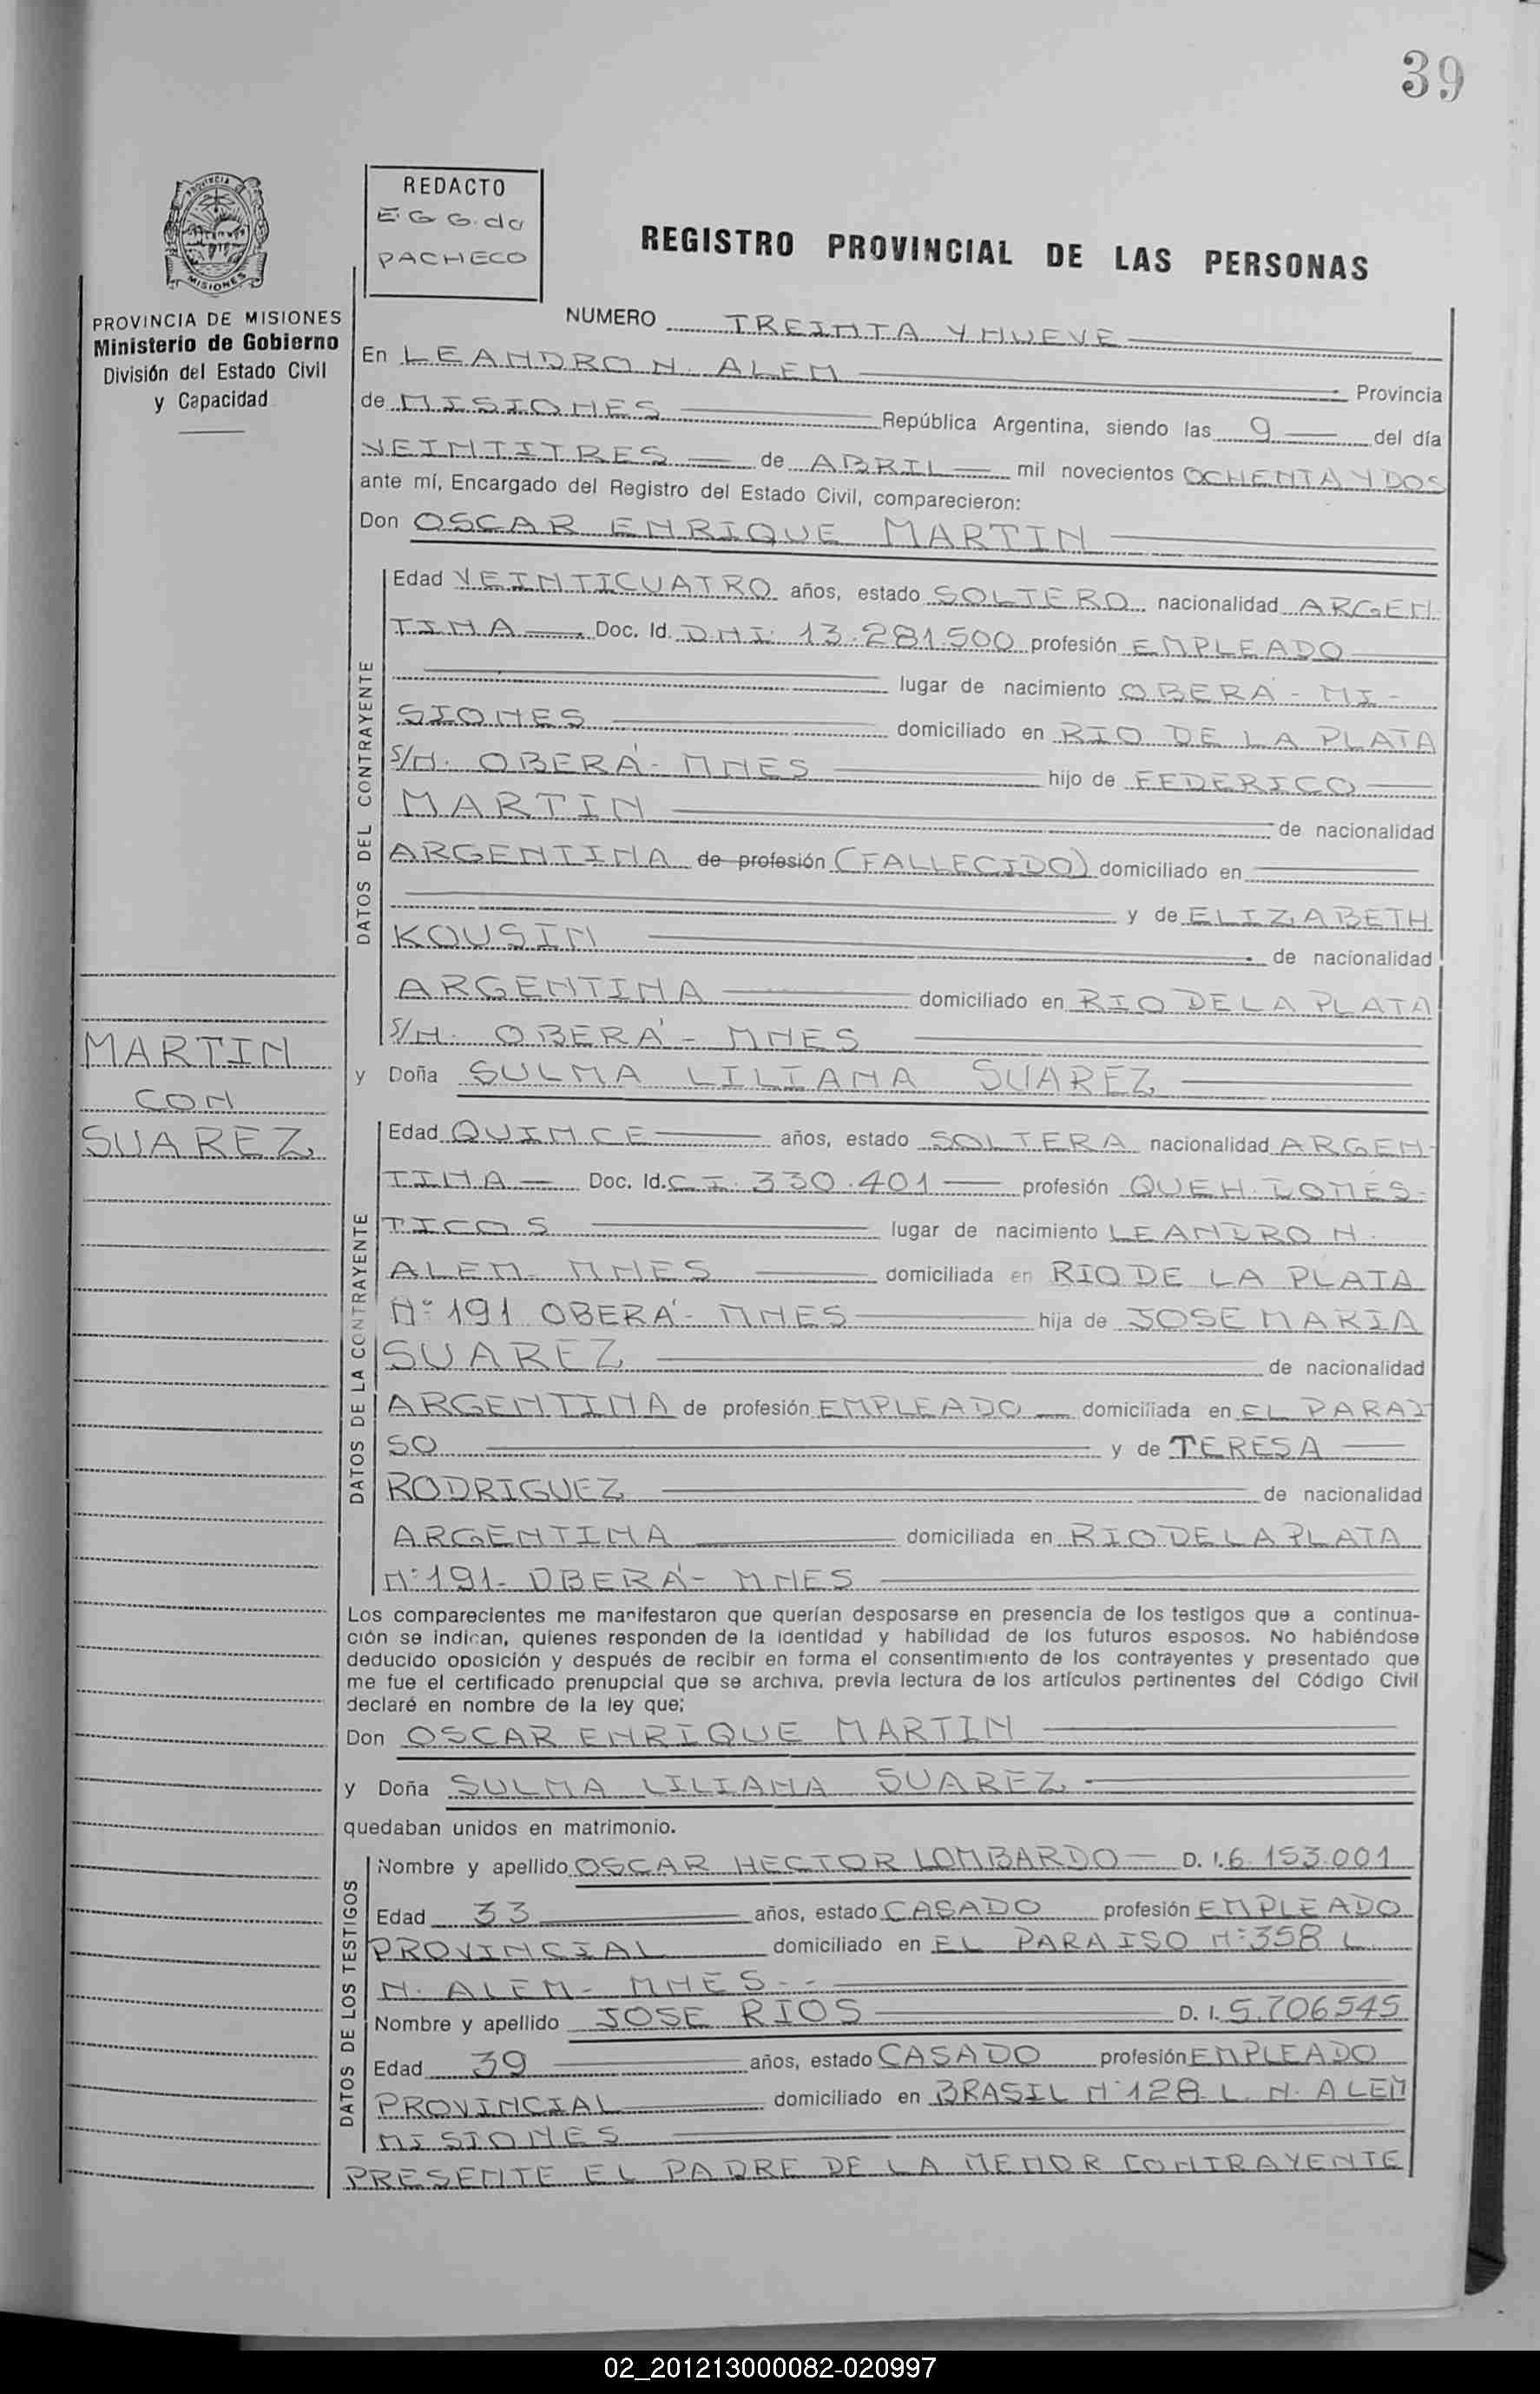 39
REDACTO
E. G G. do
PACHECO
REGISTRO PROVINCIAL DE LAS PERSONAS
PROVINCIA DE MISIONES
Ministerio de Gobierno
División del Estado Civil
y Capacidad
NUMERO TREINTA Y NUEVE
En LEANDRO N. ALEM Provincia
de MISIONES República Argentina, siendo las 9 del día
VEINTITRES de ABRIL mil novecientos OCHENTA Y DOS
ante mí, Encargado del Registro del Estado Civil, comparecieron:
Don OSCAR ENRIQUE MARTIN
DATOS DEL CONTRAYENTE
Edad VEINTICUATRO años, estado SOLTERO nacionalidad ARGEN
TINA Doc. Id. DNI: 13.281.500 profesión EMPLEADO
lugar de nacimiento OBERA - MI-
SIONES domiciliado en RIO DE LA PLATA
S/N. OBERÁ- MNES hijo de FEDERICO
MARTIN de nacionalidad
ARGENTINA de profesión (FALLECIDO) domiciliado en
y de ELIZABETH
KOUSIN de nacionalidad
ARGENTINA domiciliado en RIO DE LA PLATA
S/N. OBERÁ - MNES
MARTIN
CON
SUAREZ
y Doña SULMA LILIANA SUAREZ
DATOS DE LA CONTRAYENTE
Edad QUINCE años, estado SOLTERA nacionalidad ARGEN-
TINA Doc. Id. C.I. 330.401 profesión QUEH. DOMES-
TICOS lugar de nacimiento LEANDRO N.
ALEM- MNES domiciliada en RIO DE LA PLATA
N° 191 OBERÁ- MNES hija de JOSE MARIA
SUAREZ de nacionalidad
ARGENTINA de profesión EMPLEADO domiciliada en EL PARAI
SO y de TERESA
RODRIGUEZ de nacionalidad
ARGENTINA domiciliada en RIO DE LA PLATA
N° 191- OBERÁ- MNES
Los comparecientes me manifestaron que querían desposarse en presencia de los testigos que a continua-
ción se indican, quienes responden de la identidad y habilidad de los futuros esposos. No habiéndose
deducido oposición y después de recibir en forma el consentimiento de los contrayentes y presentado que
me fue el certificado prenupcial que se archiva, previa lectura de los artículos pertinentes del Código Civil
declaré en nombre de la ley que;
Don OSCAR ENRIQUE MARTIN
y Doña SULMA LILIANA SUAREZ
quedaban unidos en matrimonio.
DATOS DE LOS TESTIGOS
Nombre y apellido OSCAR HECTOR LOMBARDO D. I. 6.153.001
Edad 33 años, estado CASADO profesión EMPLEADO
PROVINCIAL domiciliado en EL PARAISO N° 358 L.
N. ALEM- MNES.-
Nombre y apellido JOSE RIOS D. I. 5.706545
Edad 39 años, estado CASADO profesión EMPLEADO
PROVINCIAL domiciliado en BRASIL N° 128 L. N. ALEM
MISIONES
PRESENTE EL PADRE DE LA MENOR CONTRAYENTE
02_201213000082-020997